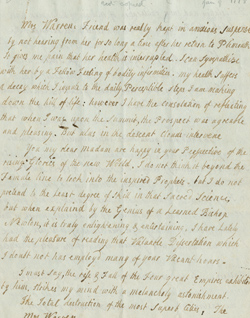 My Warren Friend was really kept in anxious suspense
by not hearing from her for so long a time after her return to Plimouth
It gives me pain that her health is interrupted. I can Sympathise
with her by a fellow feeling of bodily infirmities. my health suffers
a decay with Regards to the daily Perceptible steps I am making
down the hill of life; however I have the consolation of reflecting
that when I was upon the Summit, the Prospect was agreable
and pleasing: tho also in the descent Clouds intervene
You my dear Madam are happy in your Perspective of the
rising Glories of the new World. I do not think it beyond the
Female line to look into the inspired Prophets but I do not
pretend to the least degree of Skill in that Sacred Science,
but when explained by the Genius of a learned Bishop
Newton, it is truly enlightening & entertaining, I have lately
had the pleasure of reading that Valuable Dissertation which
I doubt not has employ'd many of your Vacant hours.
I must say, the rise & Fall of the Four great Empires exhibited
by him, strikes my mind with a melancholy astonishment.
The Total destruction of the most Superb Cities, The
My Warren